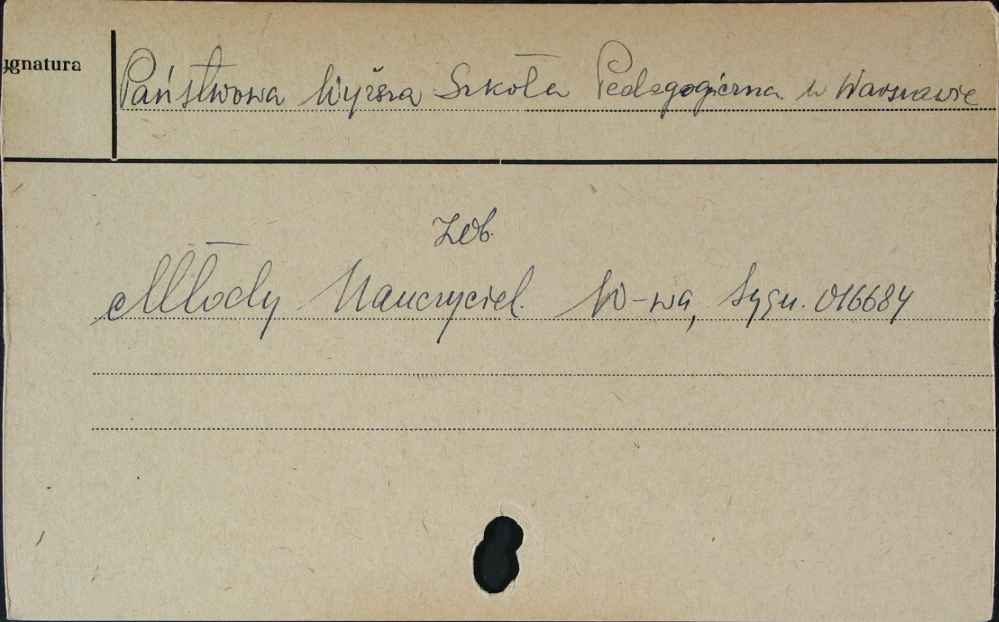 ygnatura
Państwowa Wyższa Szkoła Pedagogiczna w Warszawie
Zob.
Młody Nauczyciel. W-wa, Sygn. 016684